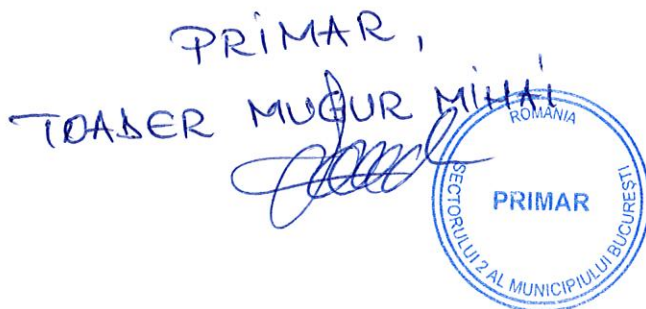 PRIMAR,
TOADER MUGUR MIHAI
ROMANIA
SECTORULUI 2 AL MUNICIPIULUI BUCUREȘTI
PRIMAR